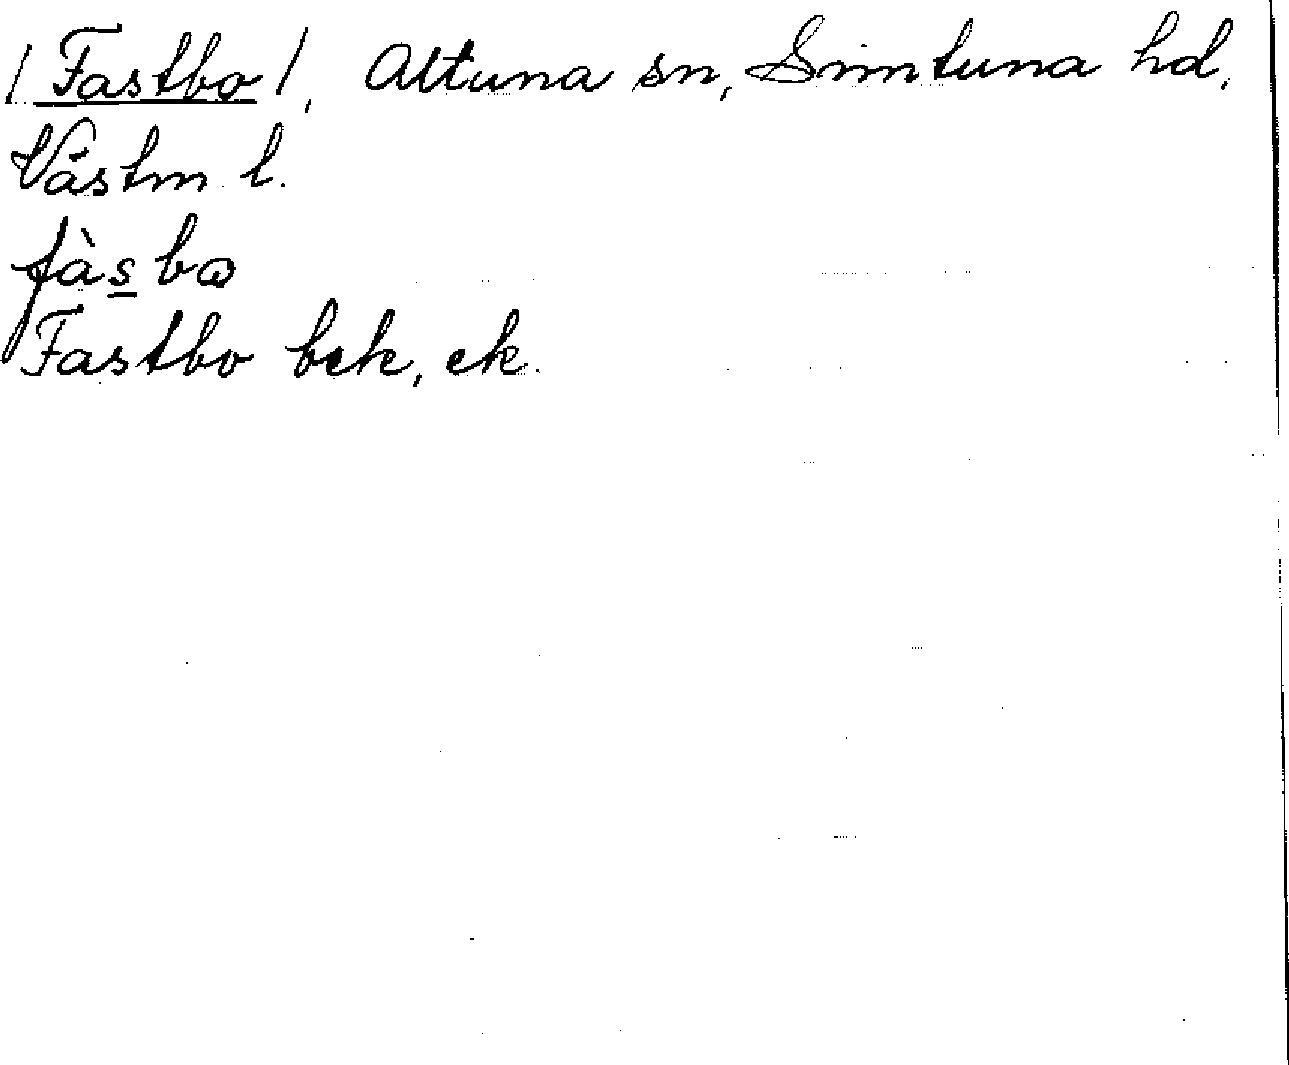 /Fastbo/, Altuna sn, Simtuna hd,
Västm l.
fàsbɷ
Fastbo bek, ek.